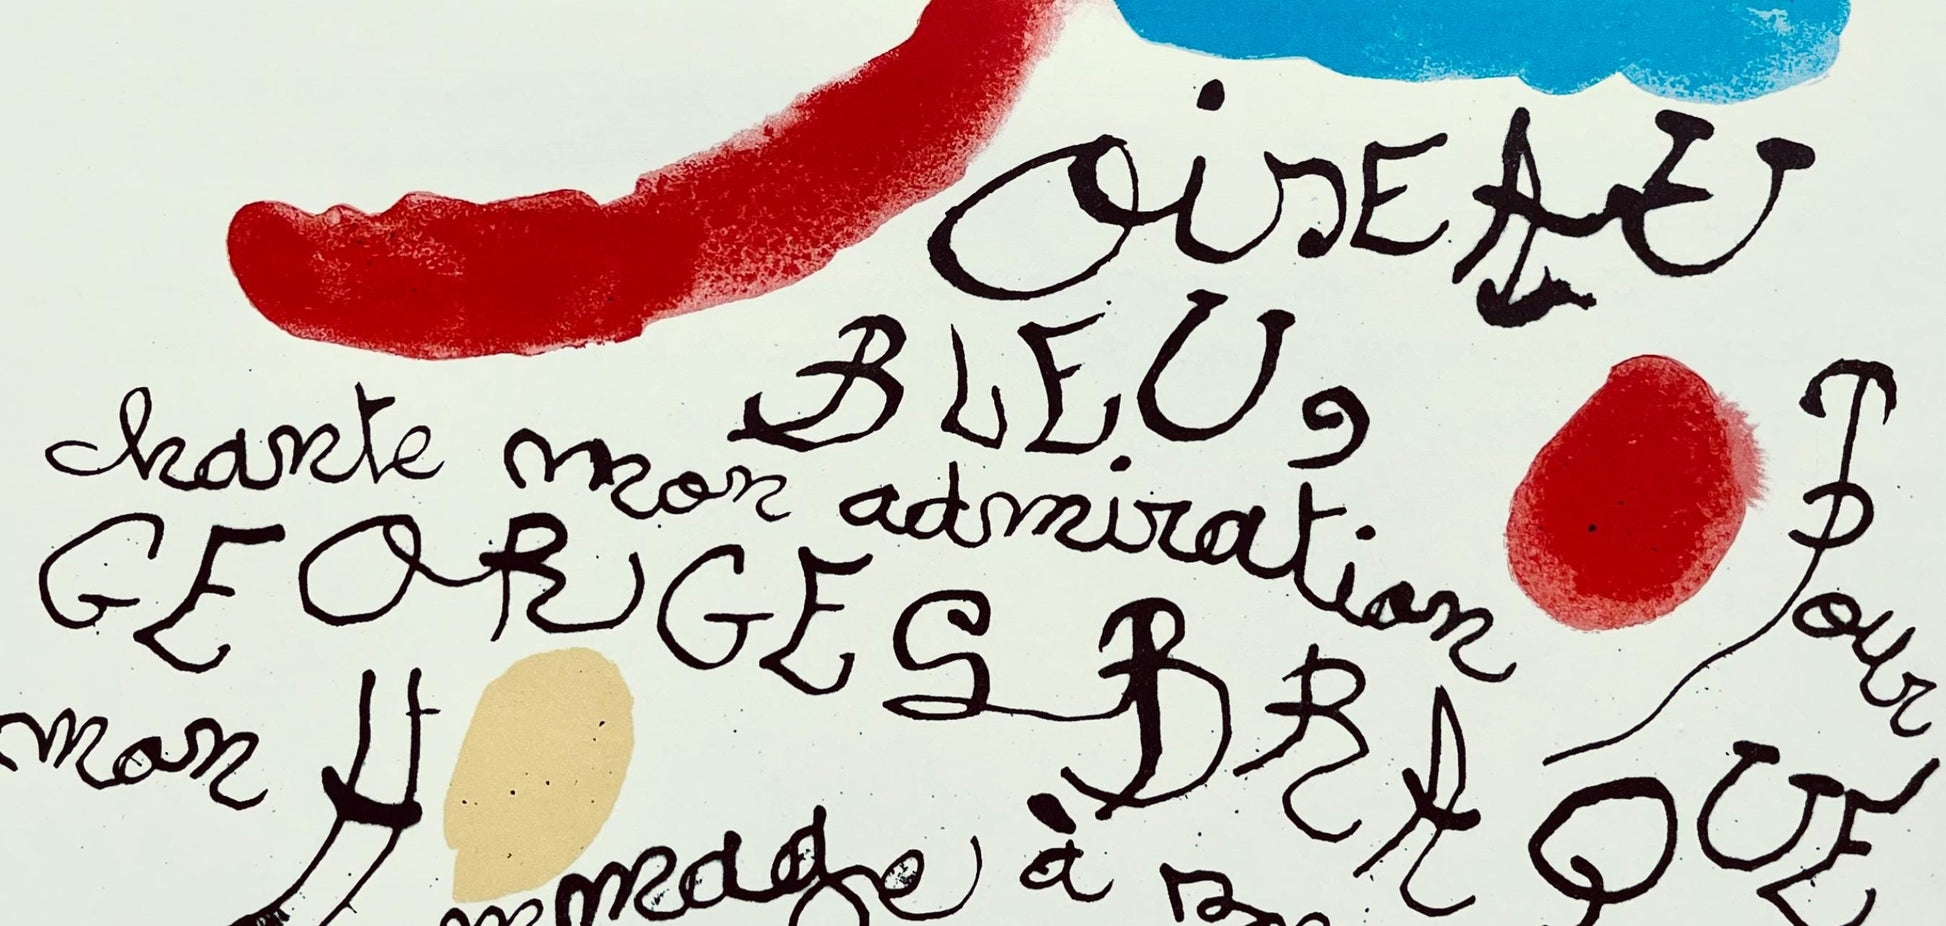 OiSEAU
BLEU,
chante mon admiration Pour
GEORGES BRAQUE
mon Hommage à